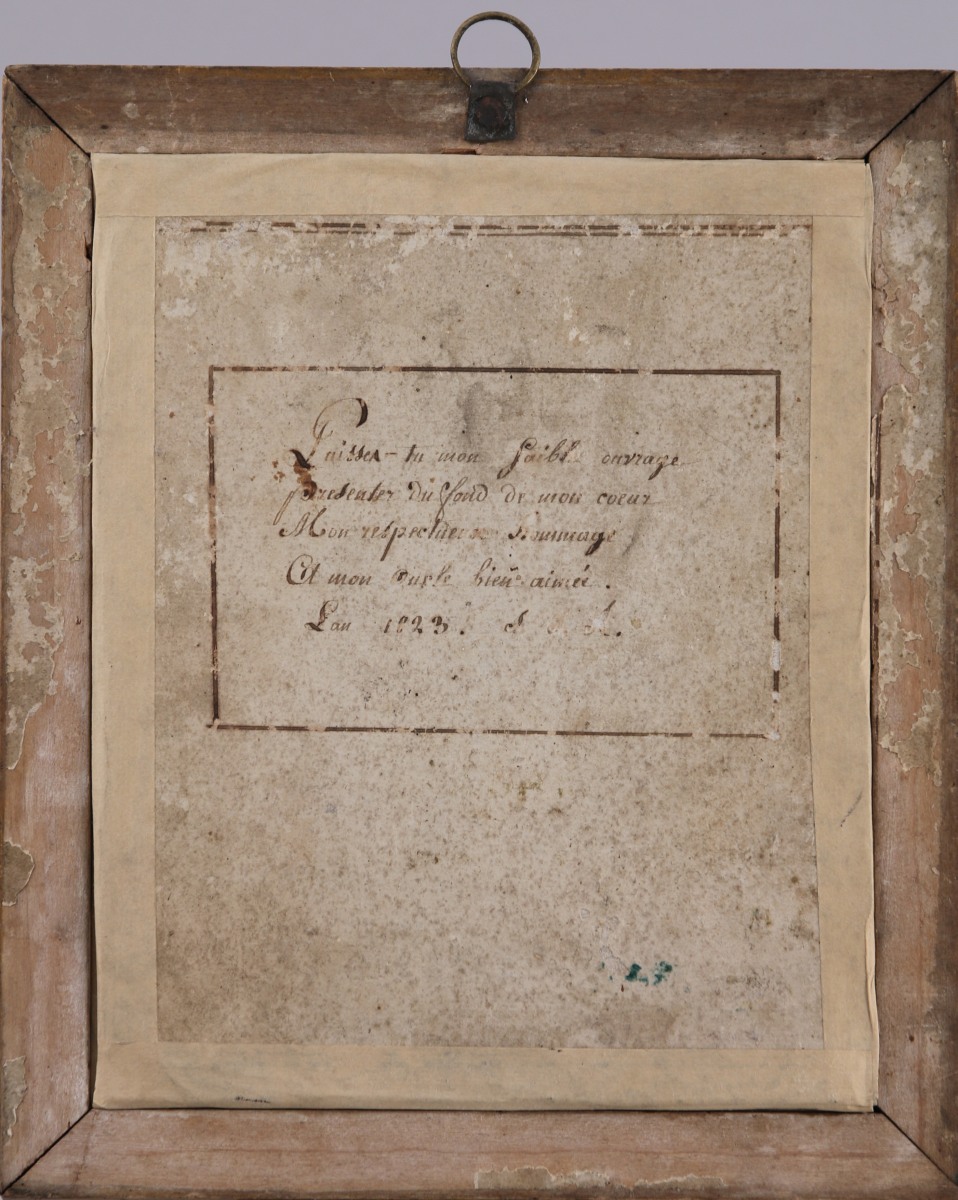 Puisses-tu mon faible ouvrage
presenter du fond de mon coeur
Mon respectueux hommage
Et mon oncle bien aimé.
Lan 1823.